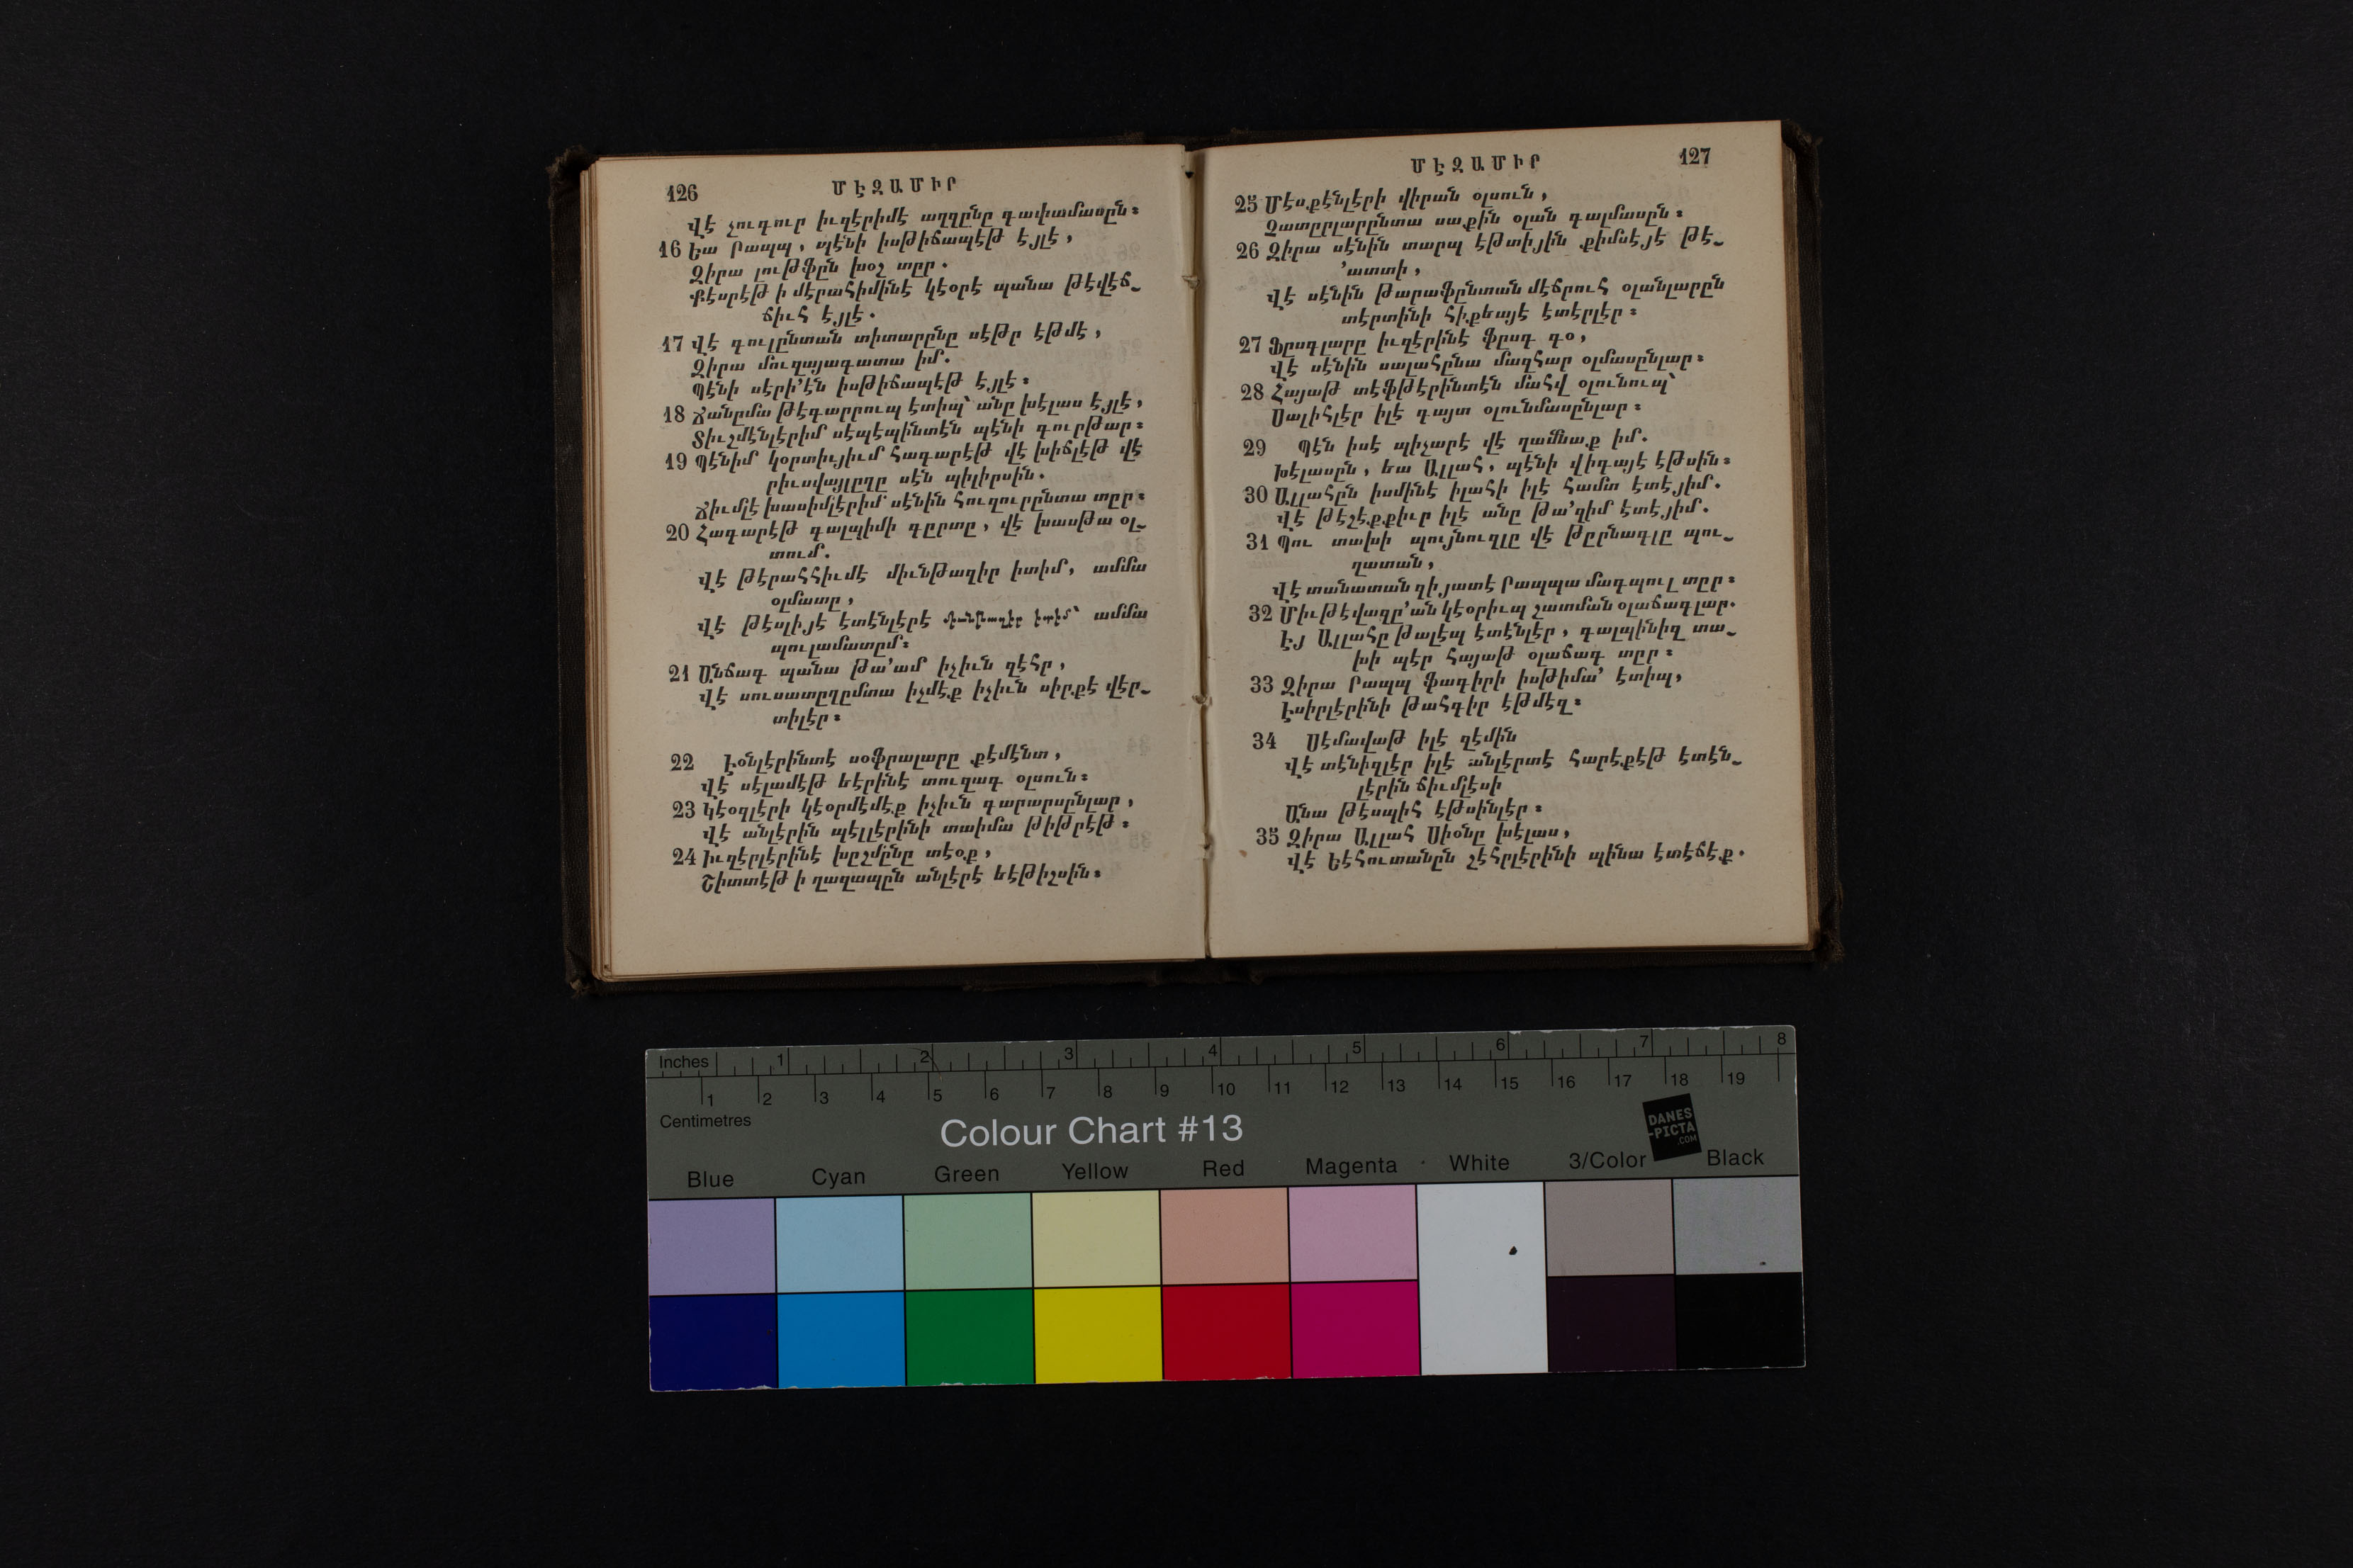 126
ՄԷԶԱՄԻՐ
Վէ չուգուր իւզէրիմէ աղզընը գափամասըն։
16 Եա Րապպ, պէնի իսթիճապէթ էյլէ,
Զիրա լութֆըն խօշ տըր.
Քէսրէթ ի մէրահիմինէ կէօրէ պանա թէվէճ֊
ճիւհ էյլէ.
17 Վէ գուլընտան տիտարընը սէթր էթմէ,
Զիրա մուզայագատա իմ.
Պէնի սէրի՚էն իսթիճապէթ էյլէ։
18 Ճանըմա թէգարրուպ էտիպ՝ անը խէլաս էյլէ,
Տիւշմէնլէրիմ սէպէպինտէն պէնի գուրթար։
19 Պէնիմ կօրտիւյիւմ հագարէթ վէ խիճլէթ վէ
րիւսվայլըղը սէն պիլիրսին.
Ճիւմլէ խասիմլէրիմ սէնին հուզուրընտա տըր։
20 Հագարէթ գալպիմի գըրտը, վէ խասթա օլ֊
տում.
Վէ թէրահհիւմէ միւնթազիր իտիմ, ամմա
օլմատը,
Վէ թէսլիյէ էտէնլէրէ մունթազիր իտիմ՝ ամմա
պուլամատըմ։
21 Անճագ պանա թա՚ամ իչիւն զէհր,
Վէ սուսատըղըմտա իչմէք իչիւն սիրքէ վէր֊
տիլէր։
22 Էօնլէրինտէ սօֆրալարը քէմէնտ,
Վէ սէլամէթ եէրինէ տուզագ օլսուն։
23 Կէօզլէրի կէօրմէմէք իչիւն գարարսընլար,
Վէ անլէրին պէլլէրինի տաիմա թիթրէթ։
24 Իւզէրլէրինէ խըշմընը տէօք,
Շիտտէթ ի ղաղապըն անլէրէ եէթիշսին։
ՄԷԶԱՄԻՐ
127
25 Մէսքէնլէրի վիրան օլսուն,
Չատըրլարընտա սաքին օլան գալմասըն։
26 Զիրա սէնին տարպ էթտիյին քիմսէյէ թէ֊
՚ատտի,
Վէ սէնին թարաֆընտան մէճրուհ օլանլարըն
տէրտինի հիքեայէ էտէրլէր։
27 Ֆըսգլարը իւզէրինէ ֆըսգ գօ,
Վէ սէնին սալահընա մազհար օլմասընլար։
28 Հայաթ տէֆթէրինտէն մահվ օլունուպ՝
Սալիհլէր իլէ գայտ օլունմասընլար։
29 Պէն իսէ պիչարէ վէ ղամնաք իմ.
Խէլասըն, եա Ալլահ, պէնի վիգայէ էթսին։
30 Ալլահըն իսմինէ իլահի իլէ համտ էտէյիմ.
Վէ թէշէքքիւր իլէ անը թա՚զիմ էտէյիմ.
31 Պու տախի պույնուզլը վէ թըրնագլը պու֊
ղատան,
Վէ տանատան զիյատէ Րապպա մագպուլ տըր։
32 Միւթէվազը՚ան կէօրիւպ շատման օլաճագլար.
Էյ Ալլահը թալէպ էտէնլէր, գալպինիզ տա֊
խի պէր հայաթ օլաճագ տըր։
33 Զիրա Րապպ ֆագիրի իսթիմա՚ էտիպ,
Էսիրլէրինի թահգիր էթմէզ։
34 Սէմավաթ իլէ զէմին
Վէ տէնիզլէր իլէ անլէրտէ հարէքէթ էտէն֊
լէրին ճիւմլէսի
Անա թէսպիհ էթսինլէր։
35 Զիրա Ալլահ Սիօնը խէլաս,
Վէ Եէհուտանըն շէհրլէրինի պինա էտէճէք.
Inches 1 2 3 4 5 6 7 8
1 2 3 4 5 6 7 8 9 10 11 12 13 14 15 16 17 18 19
Centimetres
Colour Chart #13
DANES
-PICTA
.COM
Blue Cyan Green Yellow Red Magenta White 3/Color Black